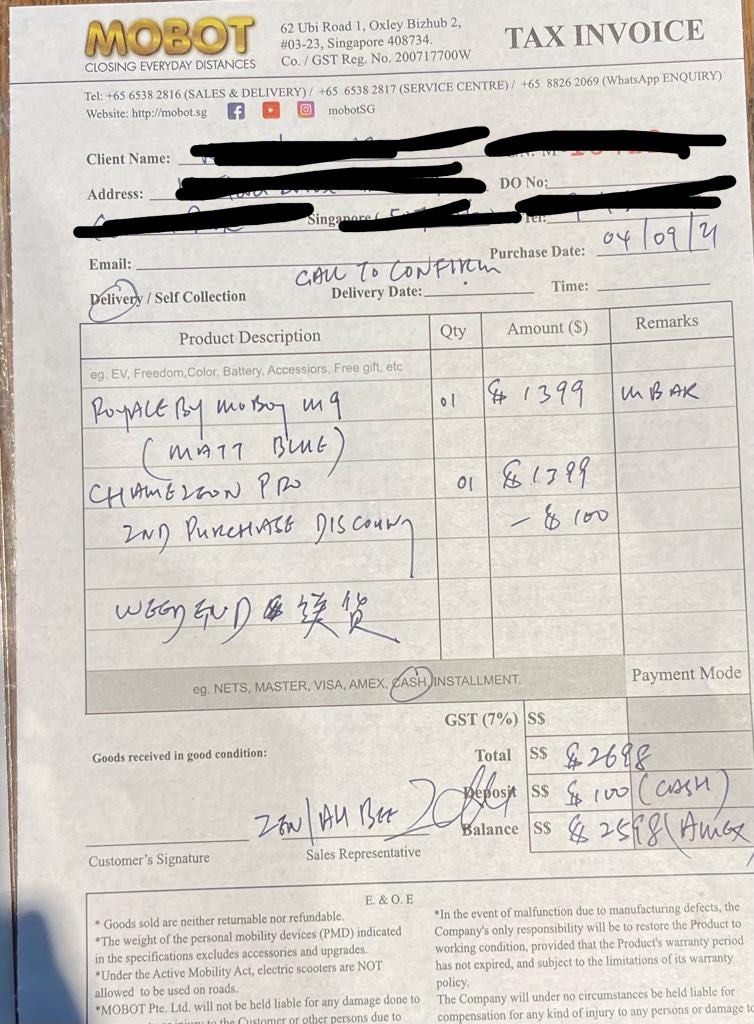 MOBOT
CLOSING EVERYDAY DISTANCES
62 Ubi Road 1, Oxley Bizhub 2,
#03-23, Singapore 408734.
Co. / GST Reg. No. 200717700W
TAX INVOICE
Tel: +65 6538 2816 (SALES & DELIVERY) / +65 6538 2817 (SERVICE CENTRE) / +65 8826 2069 (WhatsApp ENQUIRY)
Website: http://mobot.sg mobotSG
Client Name:
Address:
DO No:
Singapore (
Tel:
Email:
Purchase Date: 04/09/21
CALL TO CONFIRM
Delivery / Self Collection Delivery Date: Time:
Product Description Qty Amount ($) Remarks
eg. EV, Freedom,Color, Battery, Accessiors, Free gift, etc
ROYALE By MOBOT M9 01 $ 1399 MBAR
(MATT BLUE)
CHAMELEON PRO 01 $1399
2ND PURCHASE DISCOUNT - $ 100
WEEKEND 送货
eg. NETS, MASTER, VISA, AMEX, CASH, INSTALLMENT. Payment Mode
GST (7%) S$
Goods received in good condition:
Total S$ $2698
Deposit S$ $100 (CASH)
ZEN/AH BEE
Balance S$ $2598 (AMEX
Customer's Signature Sales Representative
E. & O. E
* Goods sold are neither returnable nor refundable.
*The weight of the personal mobility devices (PMD) indicated
in the specifications excludes accessories and upgrades.
*Under the Active Mobility Act, electric scooters are NOT
allowed to be used on roads.
*MOBOT Pte. Ltd. will not be held liable for any damage done to
injury to the Customer or other persons due to
*In the event of malfunction due to manufacturing defects, the
Company's only responsibility will be to restore the Product to
working condition, provided that the Product's warranty period
has not expired, and subject to the limitations of its warranty
policy.
The Company will under no circumstances be held liable for
compensation for any kind of injury to any persons or damage to